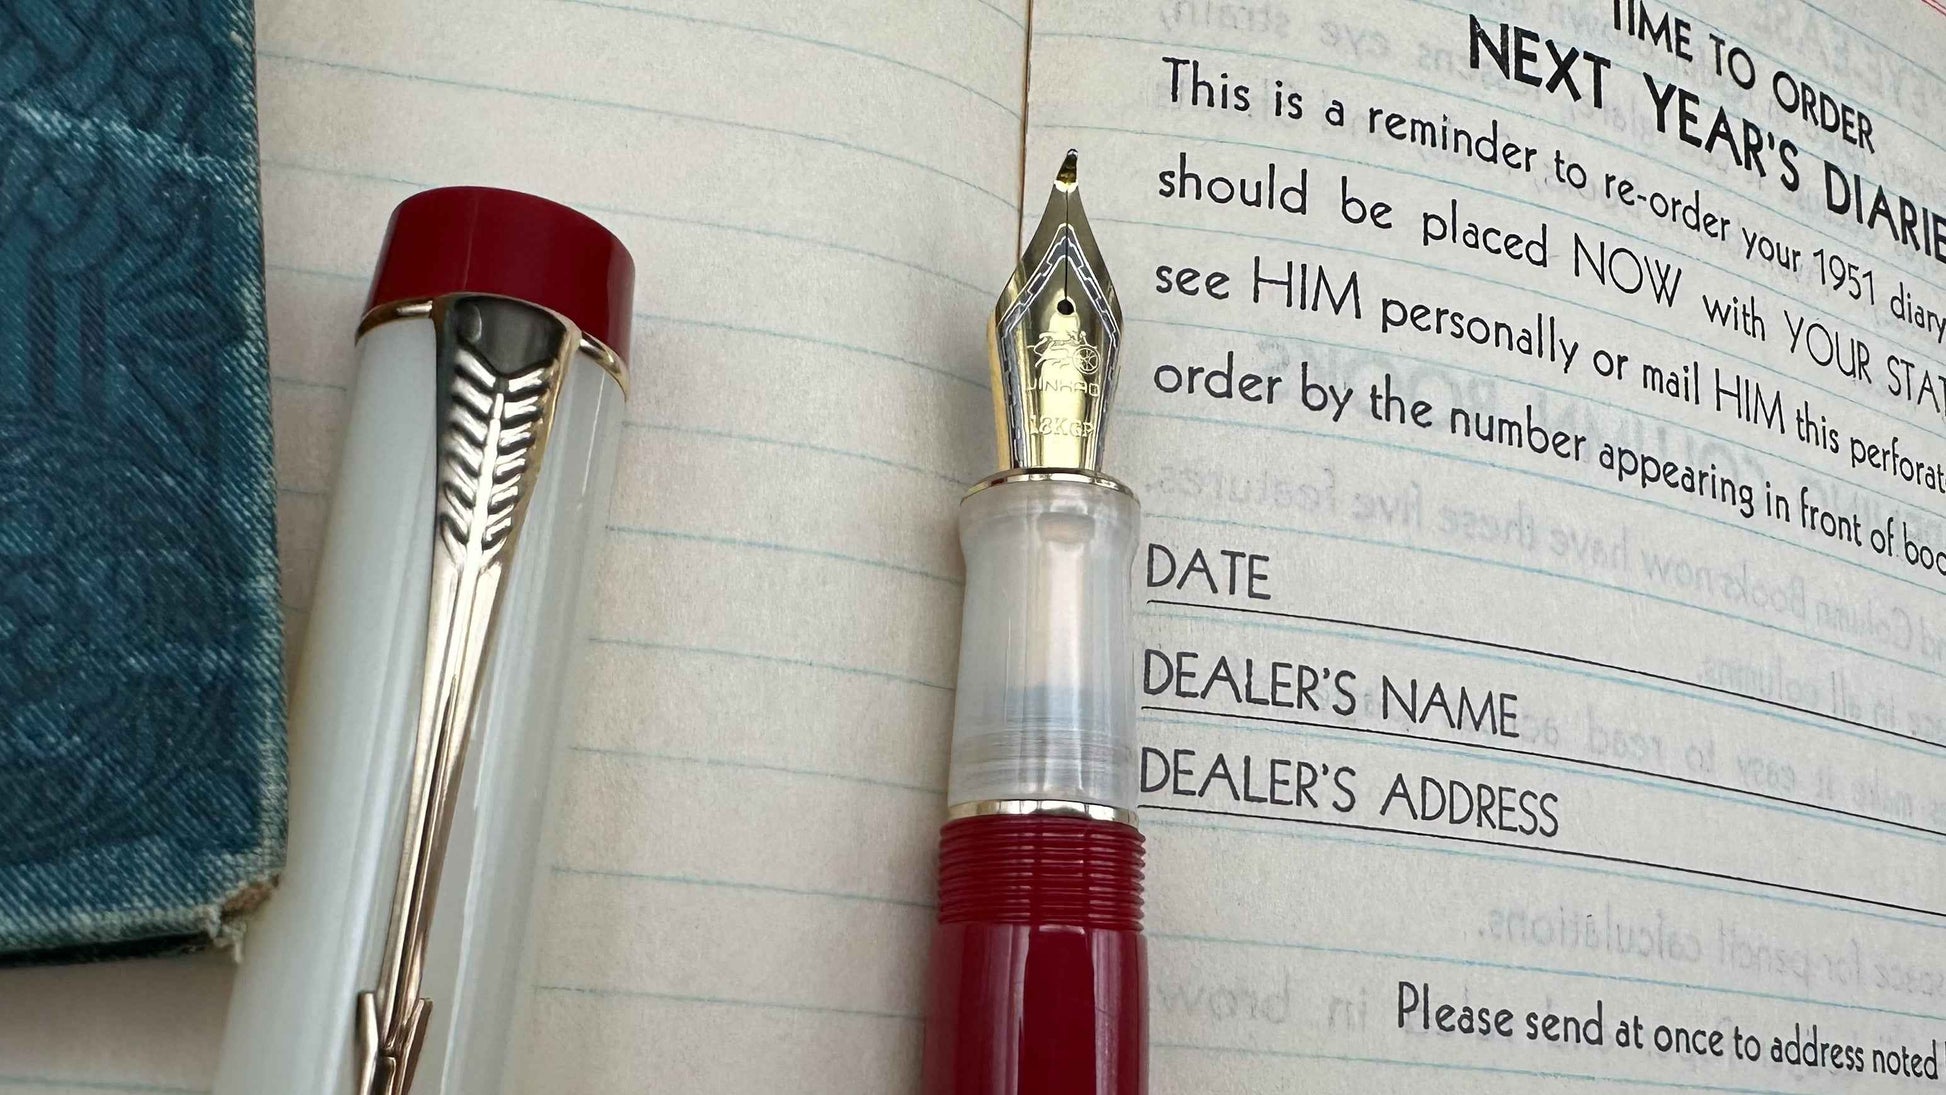 TIME TO ORDER
NEXT YEAR'S
This is a reminder to re-order your 1951 diary
should be placed NOW with YOUR
see HIM personally or mail HIM this
order by the number appearing in front of
DATE
DEALER'S NAME
DEALER'S ADDRESS
Please send at once to address noted
JINHAO
18KGP